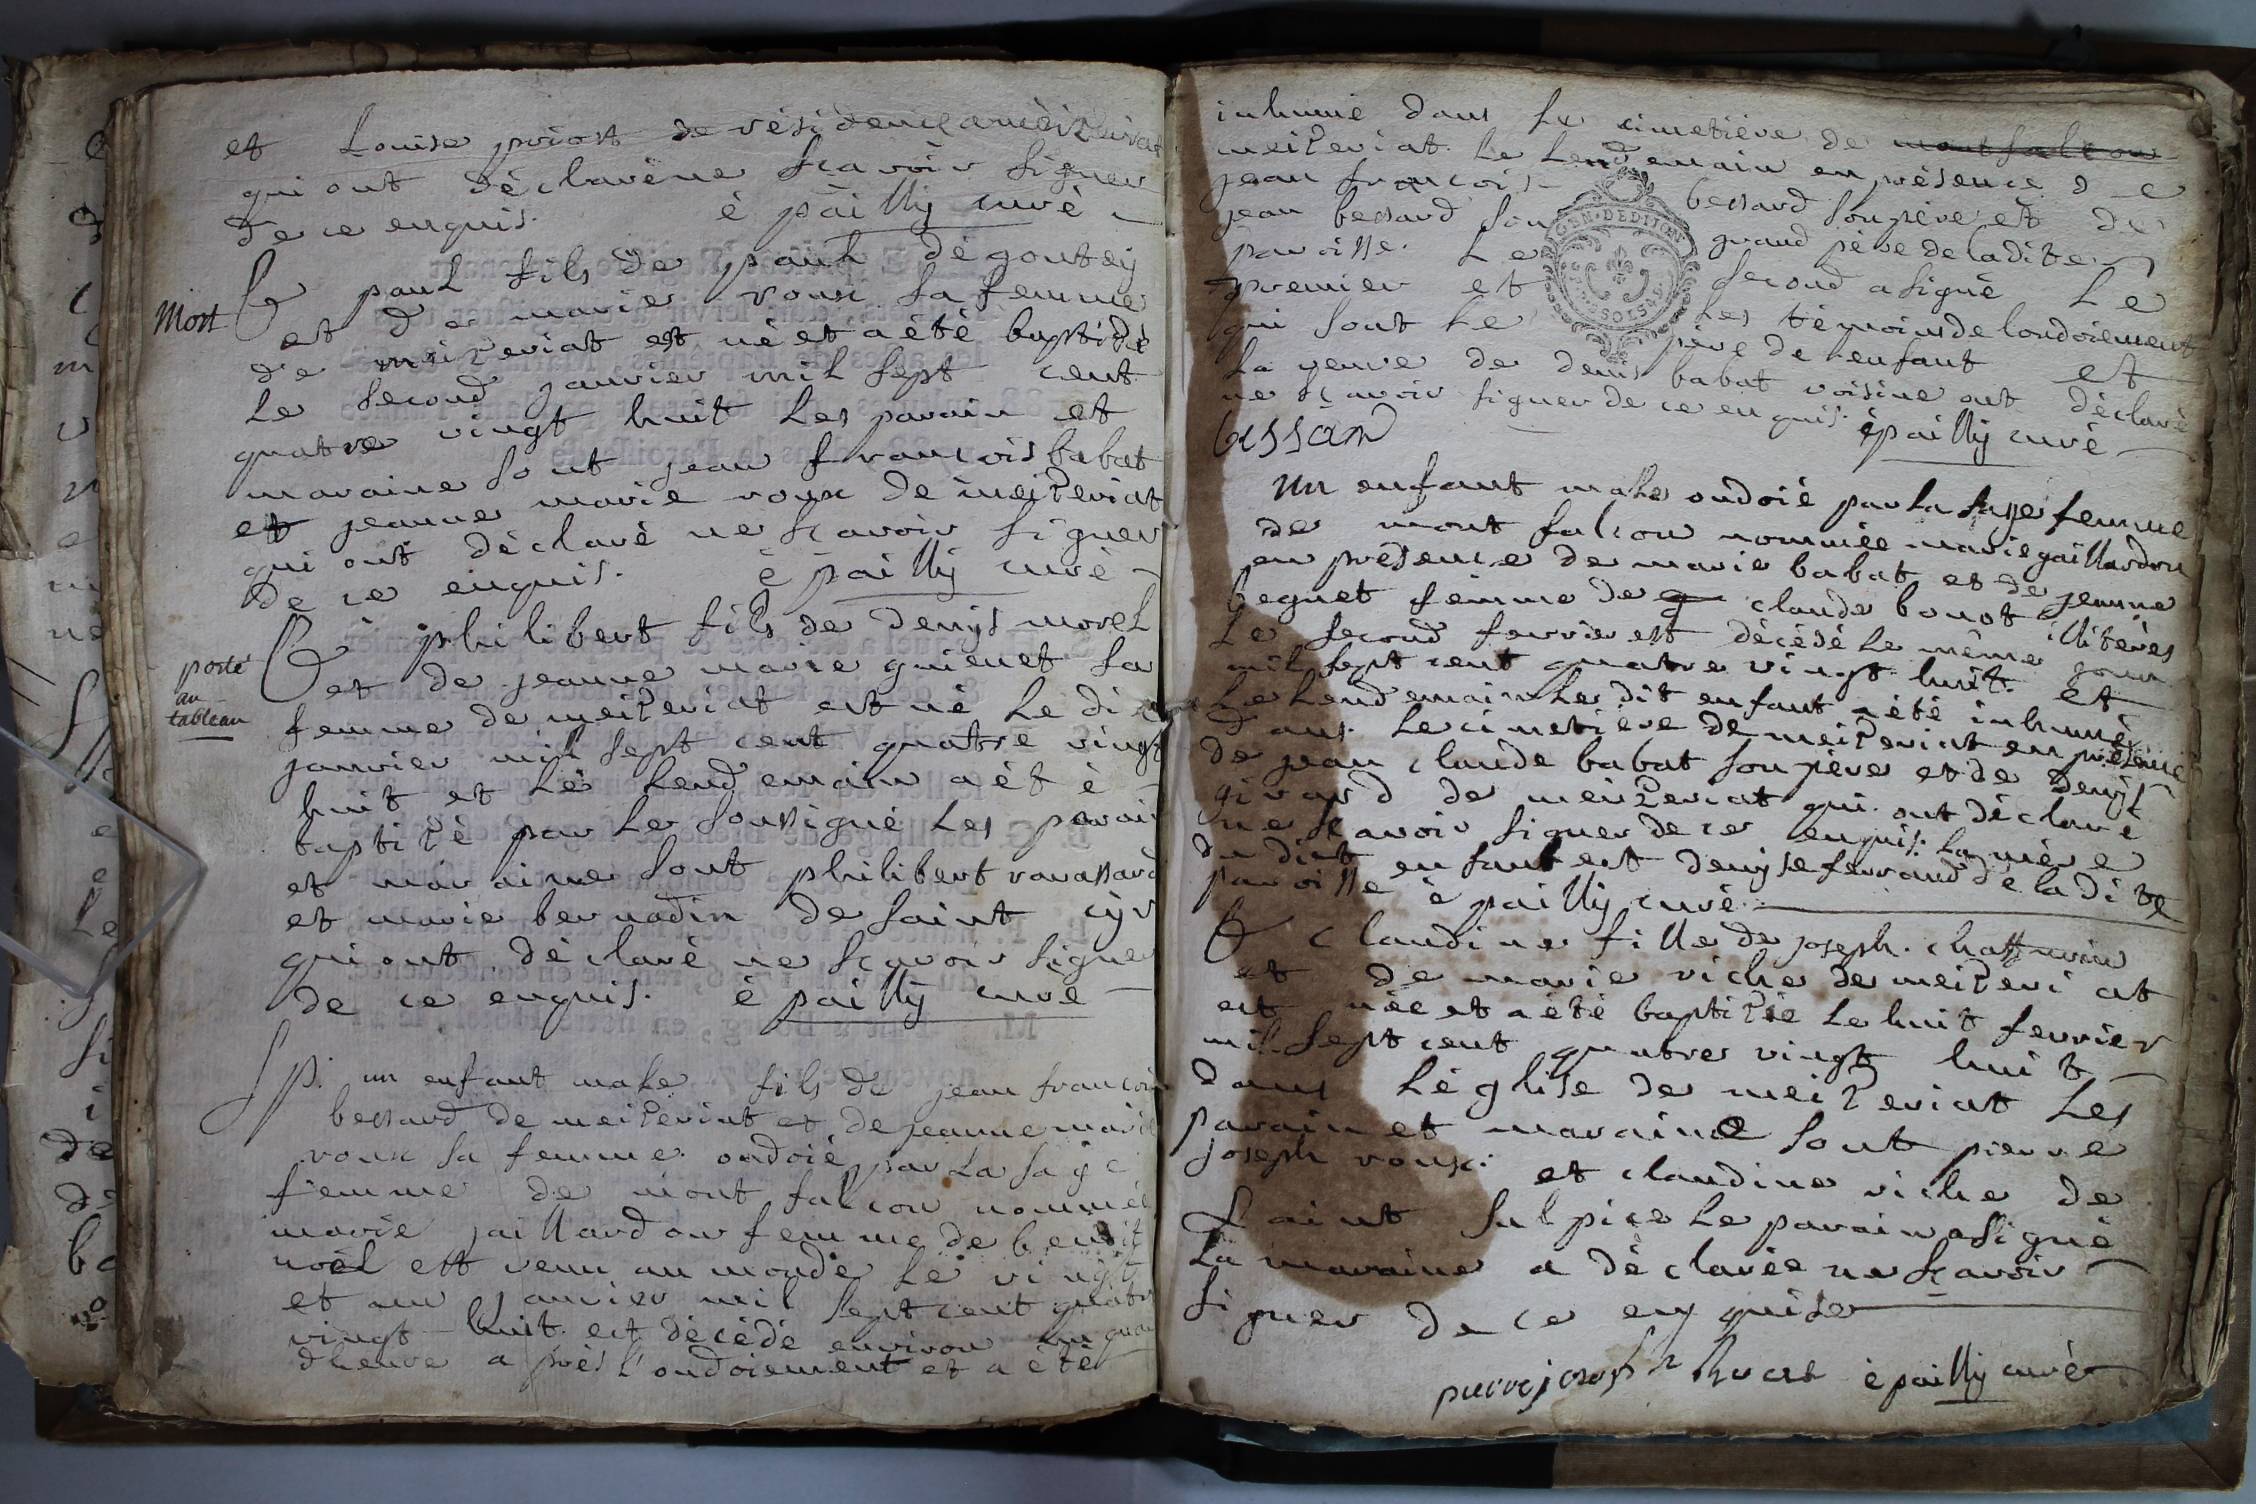 et Louise priost de résidence a meizeriat
qui ont déclaréne sçavoir signer
de ce enquis. é pailly curé
Mort
B paul fils de paul dégoutey
et de marie roux sa femme
de meizeriat est né et a été baptisé
le second janvier mil sept cent
quatre vingt huit les parain et
maraine sont jean françois babat
et jeanne marie roux de meizeriat
qui ont déclaré ne sçavoir signer
de ce enquis. é pailly curé
porté
au
tableau
B philibert fils de denys morel
et de jeanne marie guienet sa
femme de meizeriat est né le dix
janvier mil sept cent quatre vingt
huit et le lendemain a été
baptizé par le soussigné les parain
et maraine sont philibert ravassard
et marie bernadin de saint cyr
qui ont déclaré ne sçavoir signer
de ce enquis. é pailly curé
Sp. un enfant male fils de jean françois
bessard de meizeriat et de jeanne marie
roux sa femme ondoié par la sage
femme de mont falcon nommée
marie jaillardon femme de benoit
noël est venu au monde le vingt
et un janvier mil sept cent quatre
vingt huit est décédé environ un quar
dheure après l'ondoiement et a été
inhumé dans le cimetière de mont falcon
meizeriat le lendemain en présence de
jean françois bessard son père et de
jean bessard son grand père de ladite
paroisse. Le second a signé le
premier et les témoins de londoiement
qui sont le père de lenfant et
la veuve de denis babat voisine ont déclaré
ne sçavoir signer de ce enquis. é pailly curé
GEN. DE DIJON
SOLS
bessard
un enfant male ondoié par la sage femme
de mont falcon nommée marie gaillardon
en présence de marie babat et de jeanne
beguet femme de claude bonot illiterés
le second fevrier est décédé le même jour
mil sept cent quatre vingt huit. et
le lendemain le dit enfant a été inhumé
dans le cimetière de meizeriat en présence
de jean claude babat son père et de denys
girard de meizeriat qui ont déclaré
ne sçavoir signer de ce enquis. la mère
du dit enfant est denyse ferrand de la dite
paroisse é pailly curé
B claudine fille de joseph
et de marie viche de meizeriat
est née et a été baptizée le huit fevrier
mil sept cent quatre vingt huit
dans l'église de meizeriat les
parain et maraine sont pierre
joseph roux et claudine viche de
saint sulpice le parain a signé
la maraine a déclarée ne sçavoir
signer de ce enquise
pierre joseph é pailly curé